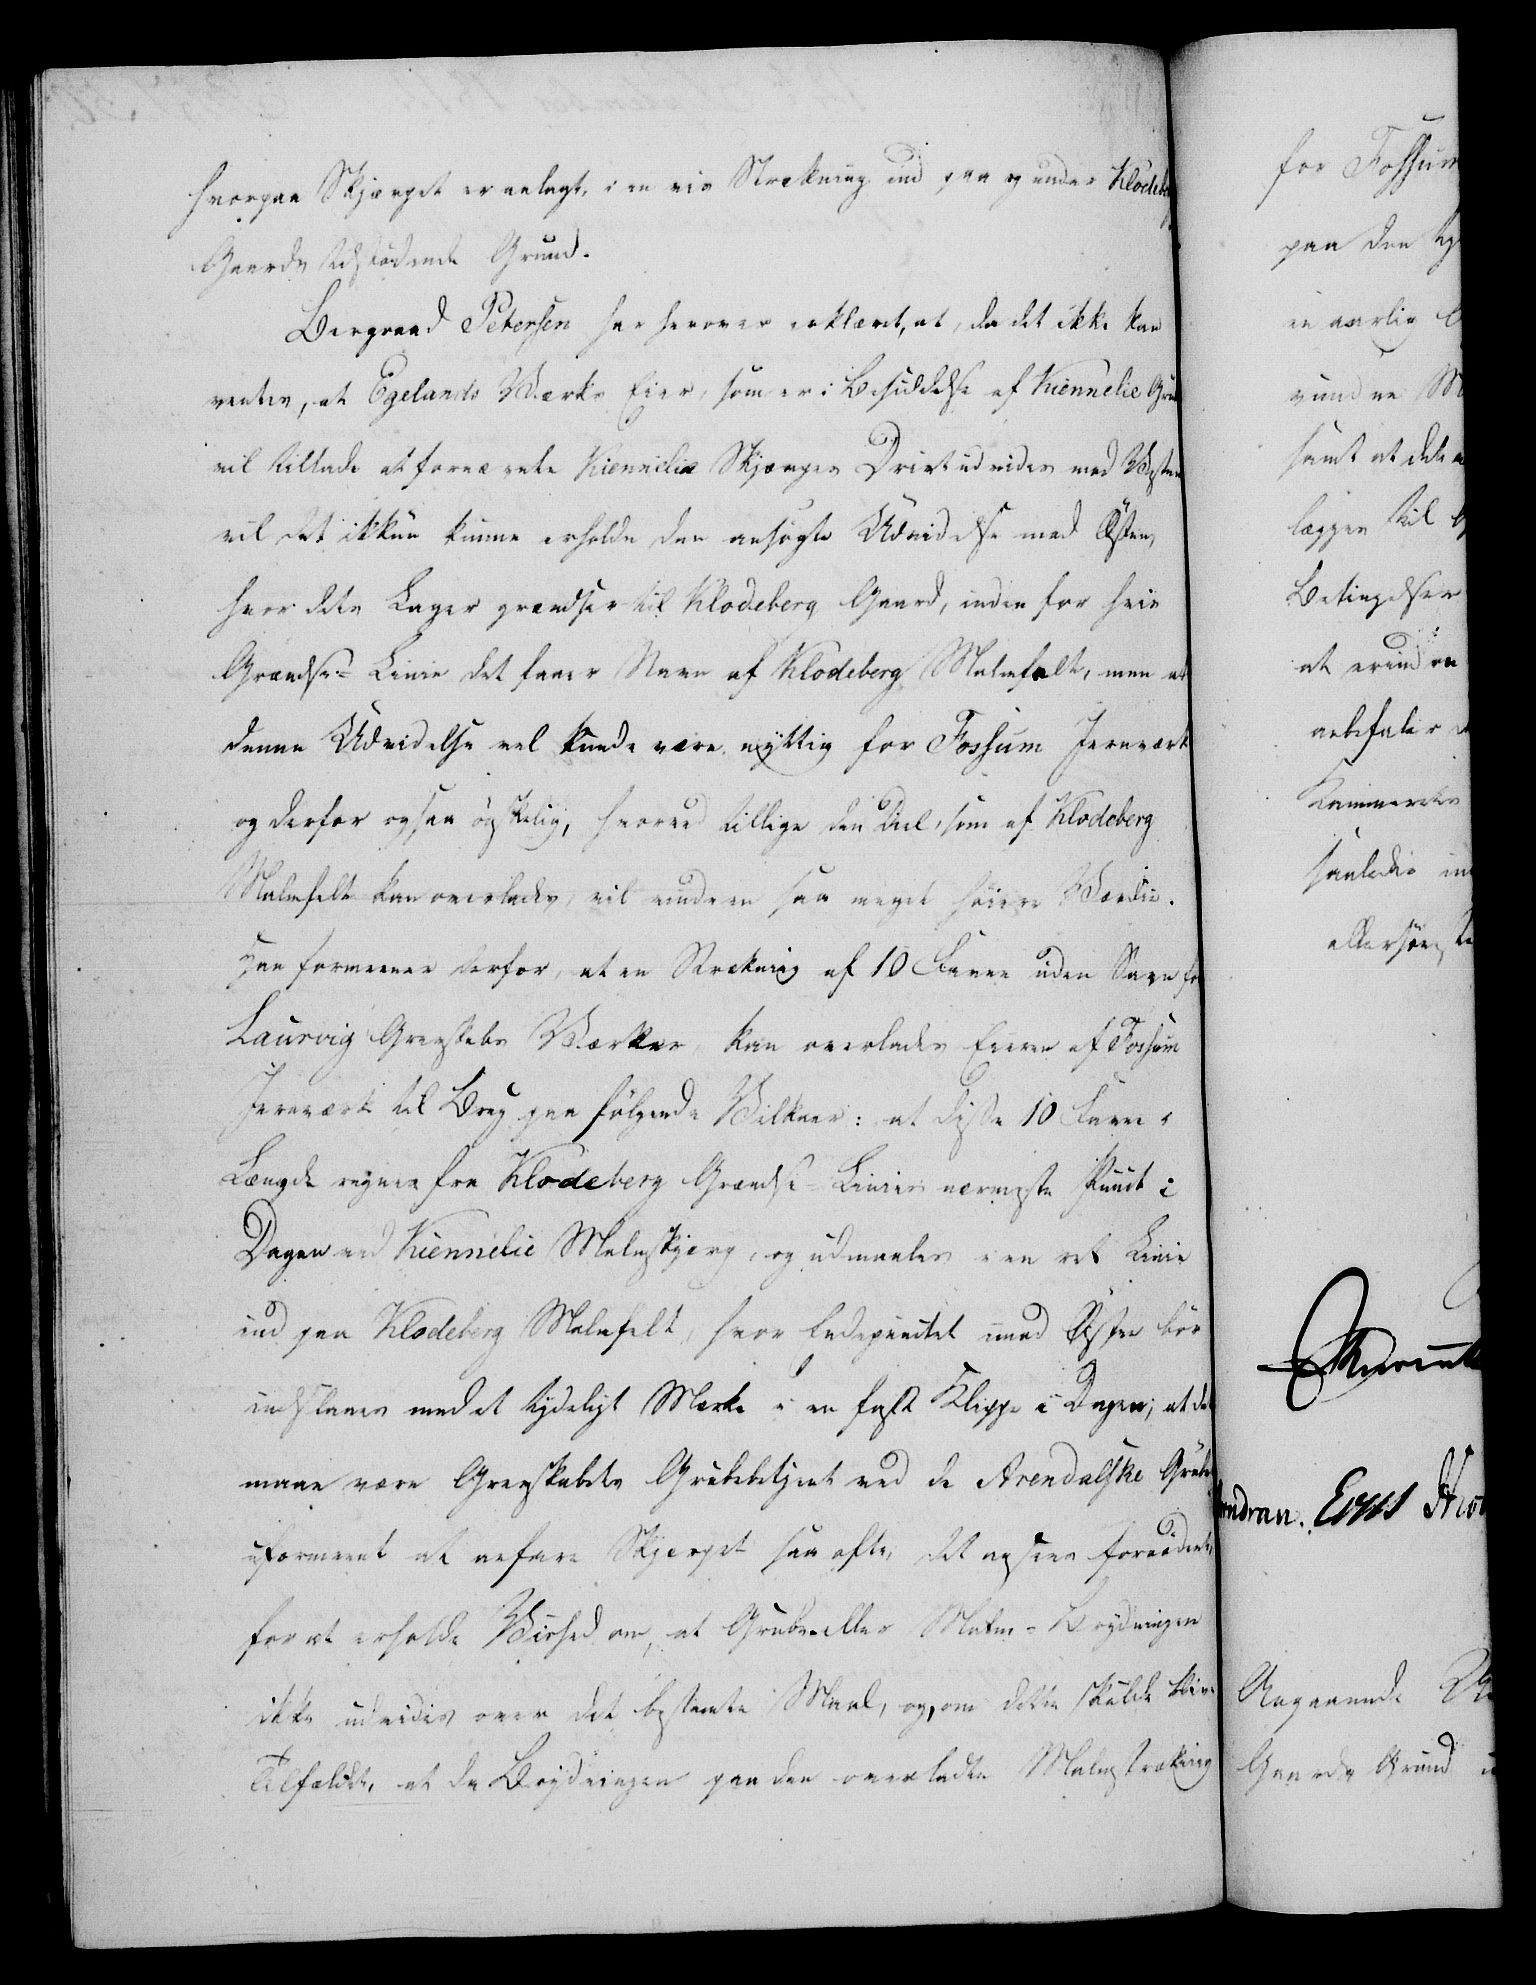 hvorpaa Skjærpet er anlagt, i en vis Strækning ind paa og under Klodeberg
Gaards tilstødende Grund.
Bergraad Petersen har herover erklæret, at, da det ikke kan
ventes, at Egelands Værks Eier, som er i Besiddelse af Kiennelie Grube
vil tillade at fornævnte Kiennelie Skjærpes Drivt udvides mod Vesten
vil det ikkun kunne erholde den ansøgte Udvidelse mod Østen,
hvor dets Lager grændser til Klodeberg Gaard, inden for hvis
Grændse-Linie det faaer Navn af Klodeberg Malmfelt, men at
denne Udvidelse vel kunde være nyttig for Fossum Jernværk
og derfor ogsaa ønskelig, hvorved tillige den Deel, som af Klodeberg
Malmfelt kan overlades, vil vinde en saa meget høiere Værdie.
Han formeener derfor, at en Strækning af 10 Favne uden Savn for
Laurvig Grevskabs Værker, kan overlades Eieren af Fossum
Jernværk til Brug paa følgende Vilkaar: at disse 10 Favne i
Længde regnes fra Klodeberg Grændse-Linies nærmeste Punct i
Dagen ved Kiennelie Malmskjærp, og udmaales i en ret Linie
ind paa Klodeberg Malmfelt, hvor Endepunctet imod Østen bør
indslaaes med et tydeligt Mærke i en fast Klippe i Dagen; at det
maae være Grevskabets Grubebetjent ved de Arendalske Gruber
uformeent at befare Skjærpet saa ofte, det agtes fornødent,
for at erholde Vished om, at Grube- eller Malm-Brydningen
ikke udvides over det bestemte Maal, og, om dette skulde blive
Tilfældet, at da Brydningen paa den overladte Malmstrækning
for Fossum
paa den
en aarlig
vundne
samt at det
lægges til
Betingelser
at erindre
anbefaler
Kammerets
saaledes
allerhøieste
Angaaende
Gaards Grund